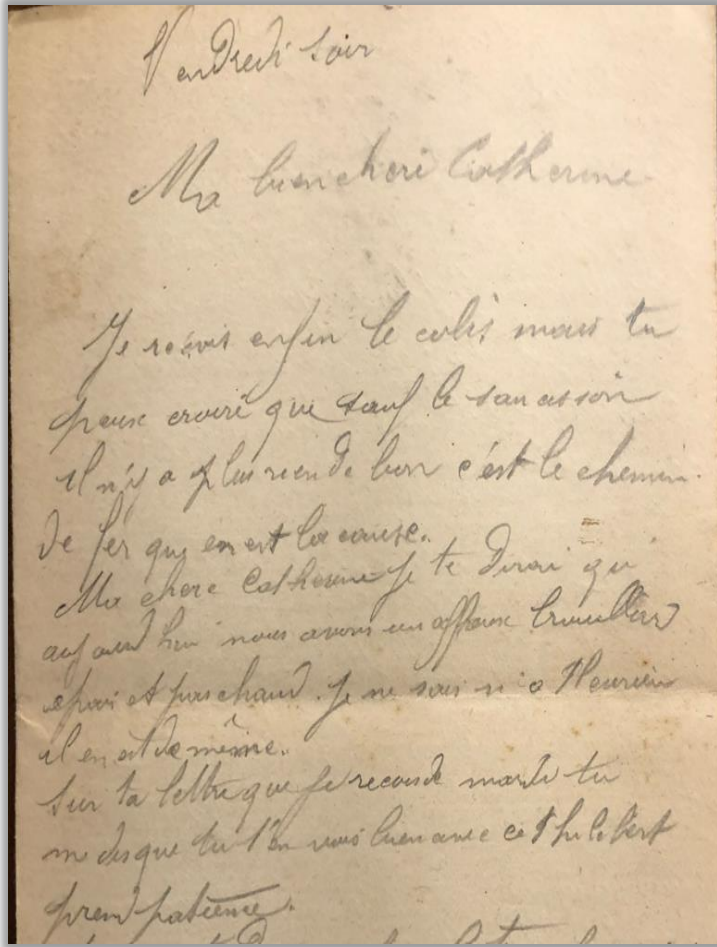 Vendredi soir
Ma bien cheri Catherine
Je reçois enfin le colis mais tu
peux croire que sauf le saucisson
il n'y a plus rien de bon c'est le chemin
de fer que en est la cause.
Ma chere Catherine je te dirai qu'
aujourd hui nous avons un affreux brouillard
epais et pas chaud. Je ne sais si a Fleurieu
il en est de même.
Sur ta lettre que je recois de mardi tu
me dis que tu t'en vois bien avec ce Philibert
prend patience.